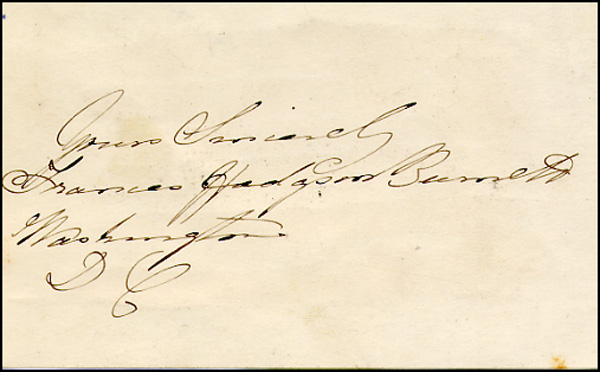 Yours Sincerely
Frances Hodgson Burnett
Washington
D C